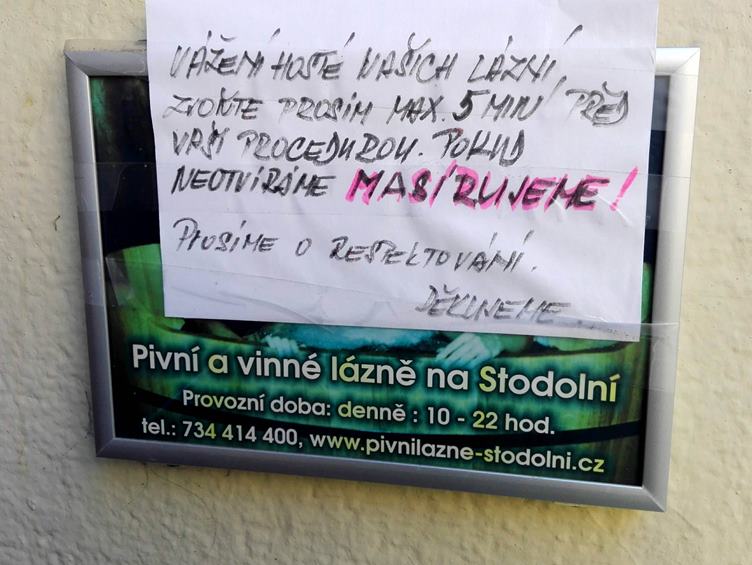 VÁŽENÍ HOSTÉ NAŠICH LÁZNÍ,
ZVOŇTE PROSÍM MAX. 5 MIN PŘED
VAŠÍ PROCEDUROU. POKUD
NEOTVÍRÁME MASÍRUJEME!
PROSÍME O RESPEKTOVÁNÍ.
DĚKUJEME
Pivní a vinné lázně na Stodolní
Provozní doba: denně : 10 - 22 hod.
tel.: 734 414 400, www.pivnilazne-stodolni.cz